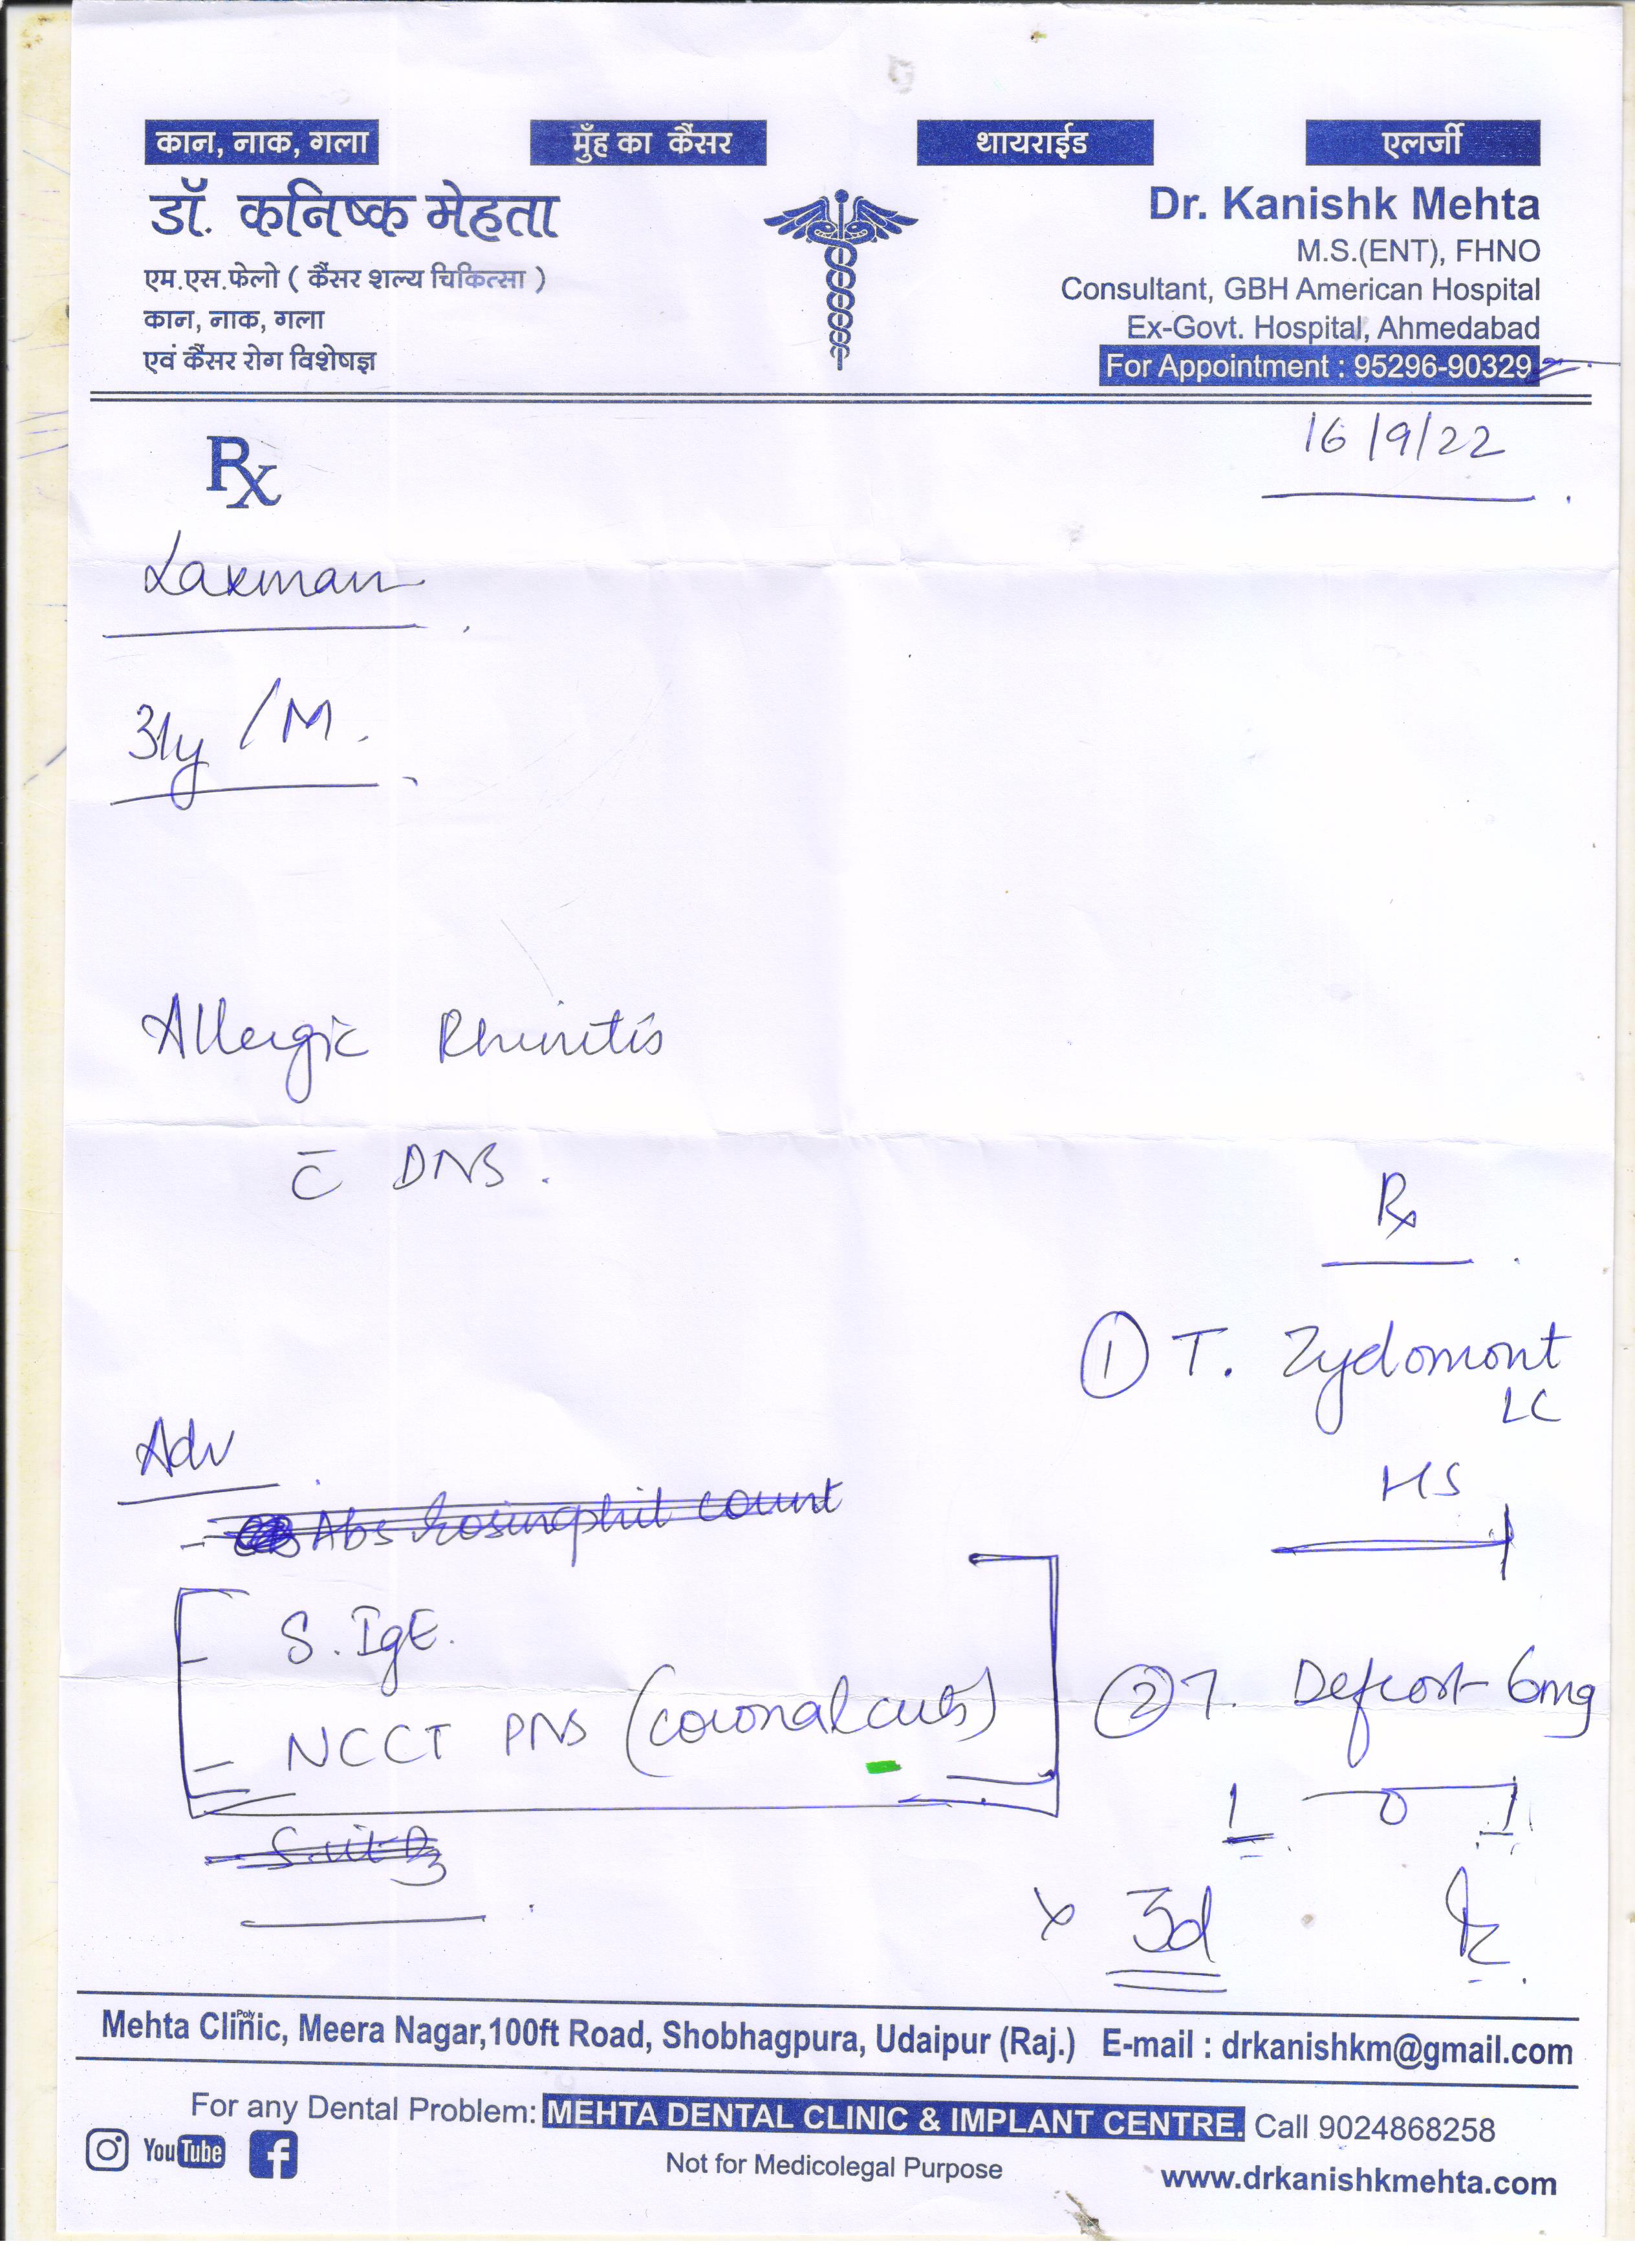 कान, नाक, गला
मुँह का कैंसर
थायराईड
एलर्जी
डॉ. कनिष्क मेहता
एम.एस.फेलो ( कैंसर शल्य चिकित्सा )
कान, नाक, गला
एवं कैंसर रोग विशेषज्ञ
Dr. Kanishk Mehta
M.S.(ENT), FHNO
Consultant, GBH American Hospital
Ex-Govt. Hospital, Ahmedabad
For Appointment : 95296-90329
16/9/22
Rx
Laxman
31y /M.
Allergic Rhinitis
c̄ DNS.
Adv
- Abs Eosinophil count
- S. IgE.
- NCCT PNS (coronal cuts)
- S. vit D3
Rx
① T. Zydomont
LC
HS
1
② T. Defcort 6mg
1 — 0 — 1
x 3d
Mehta Poly Clinic, Meera Nagar,100ft Road, Shobhagpura, Udaipur (Raj.) E-mail : drkanishkm@gmail.com
For any Dental Problem: MEHTA DENTAL CLINIC & IMPLANT CENTRE. Call 9024868258
YouTube
Not for Medicolegal Purpose
www.drkanishkmehta.com